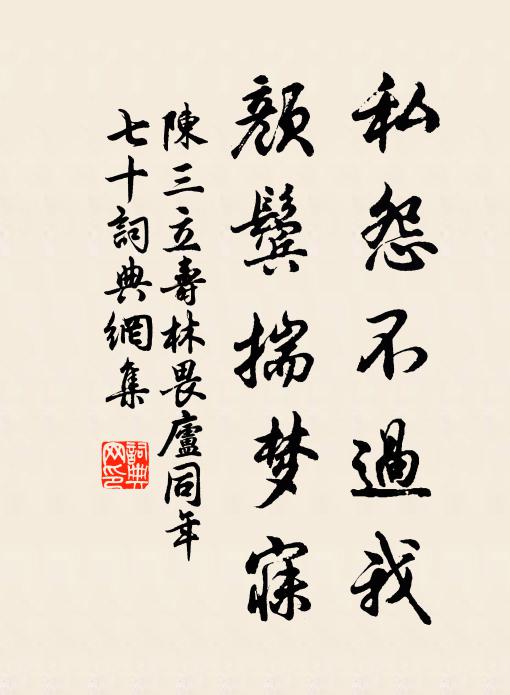 私怨不過我
顏鬓揣梦寐
陳三立壽林畏廬同年
七十詞典網集
詞典网印